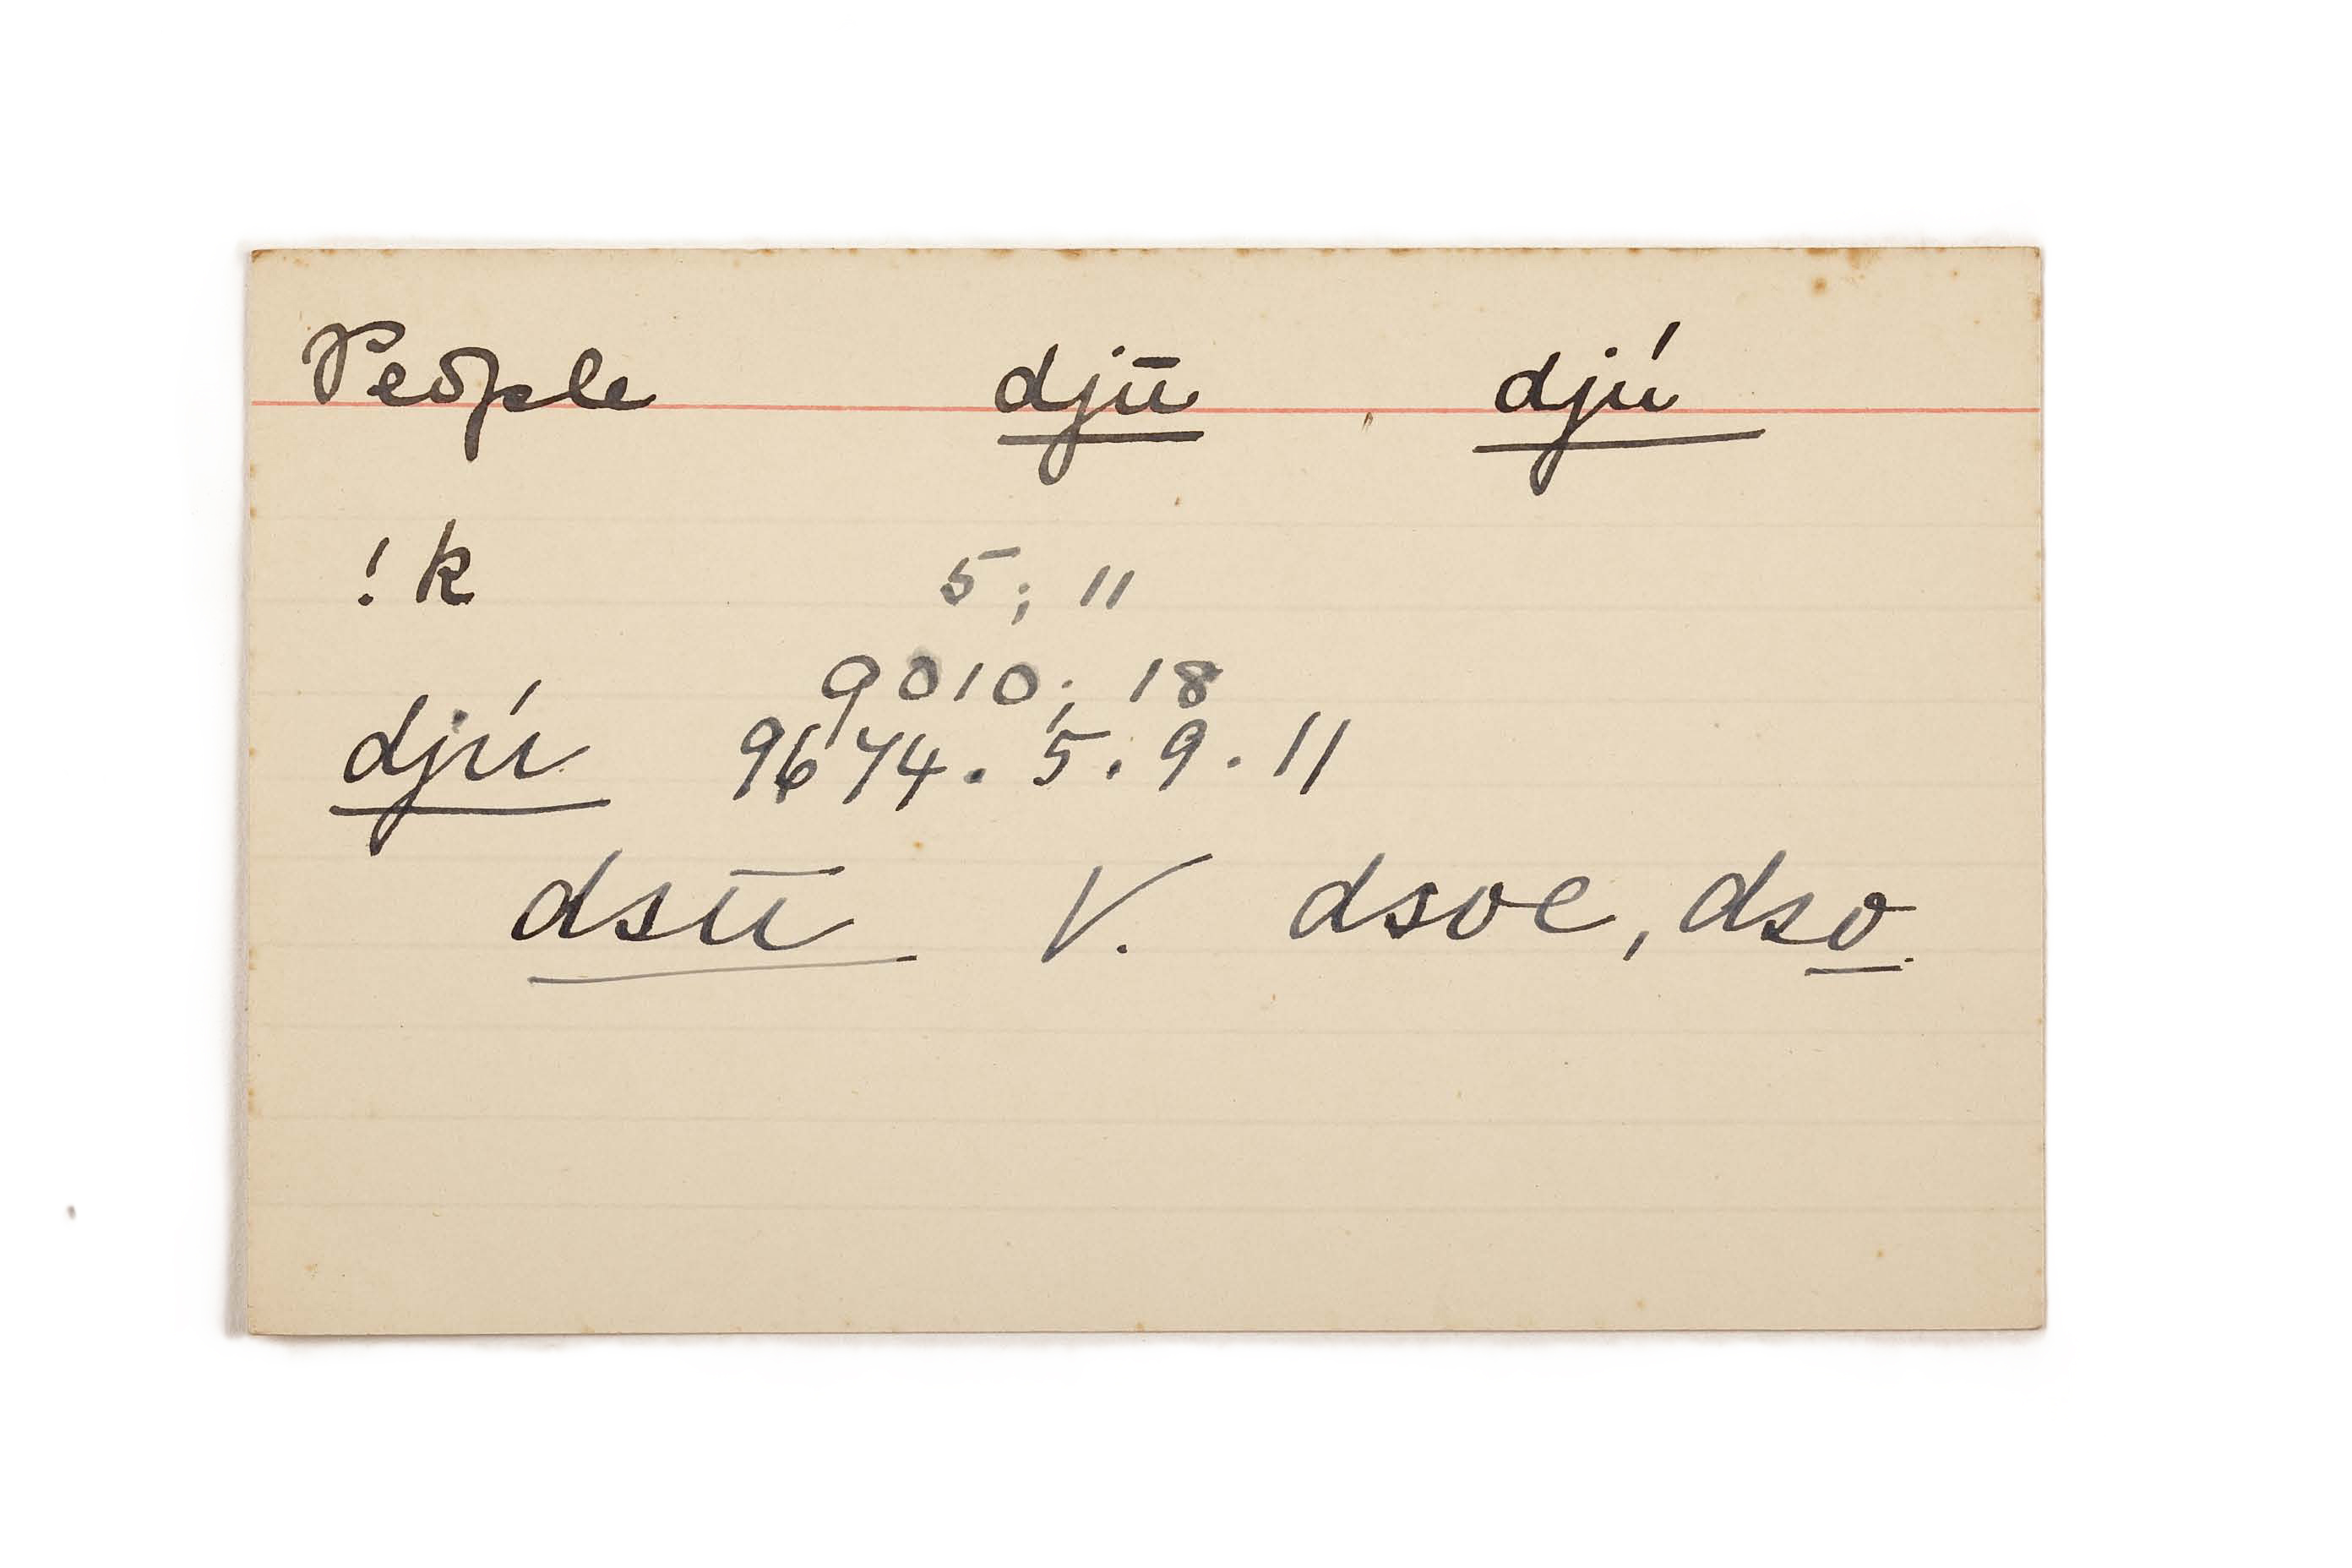 People djū djú
! k 5; 11
9010; 18
djú 9674. 5. 9. 11
dsū V. dsoe, dso.